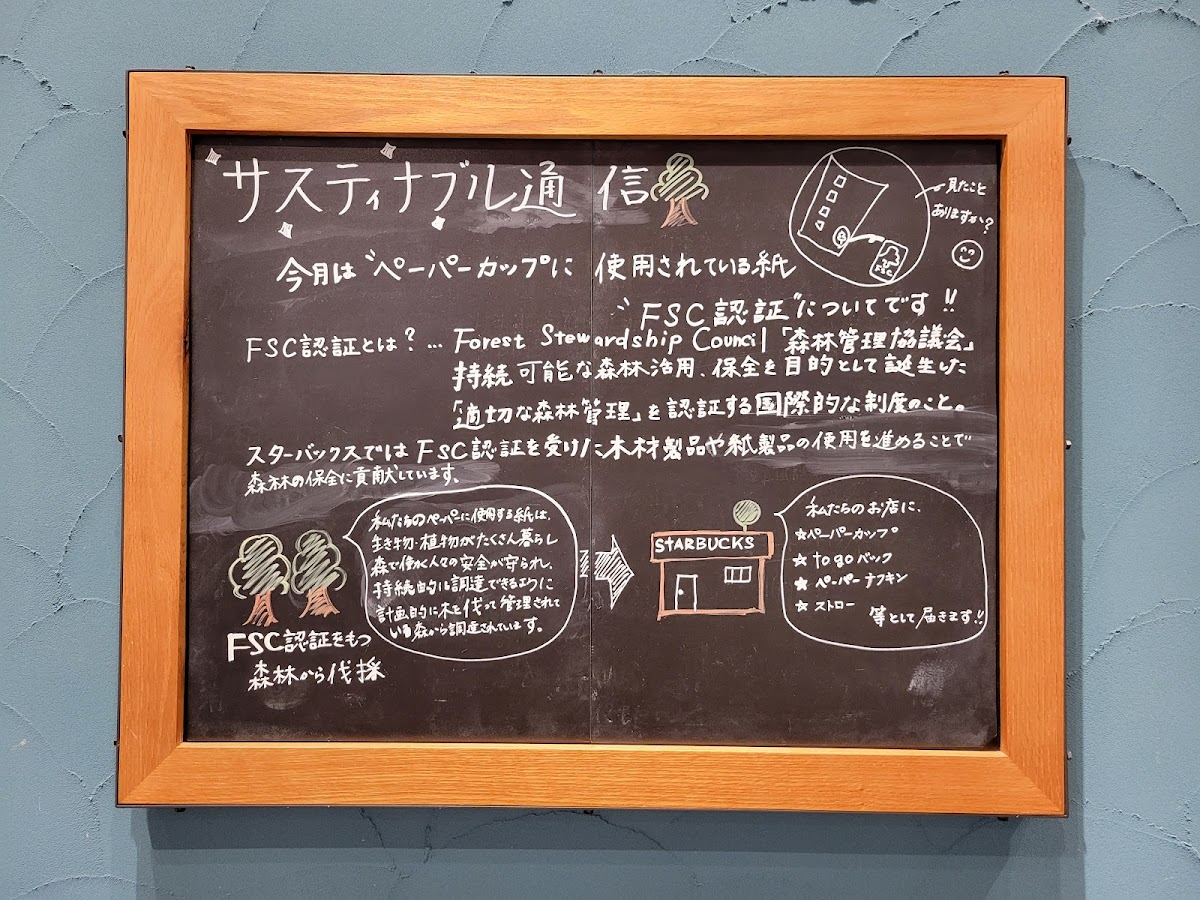 サスティナブル通信
見たこと
ありますか?
FSC
今月は"ペーパーカップに使用されている紙
"FSC認証"についてです!!
FSC認証とは?... Forest Stewardship Council「森林管理協議会」
持続可能な森林活用、保全を目的として誕生した
「適切な森林管理」を認証する国際的な制度のこと。
スターバックスではFSC認証を受けた木材製品や紙製品の使用を進めることで
森林の保全に貢献しています。
私たちのペーパーに使用する紙は、
生き物・植物がたくさん暮らし
森で働く人々の安全が守られ、
持続的に調達できるように
計画的に木を伐って管理されて
いる森から調達されています。
FSC認証をもつ
森林から伐採
STARBUCKS
私たちのお店に、
☆ペーパーカップ
☆to goバック
☆ペーパーナフキン
☆ストロー
等として届きます!!